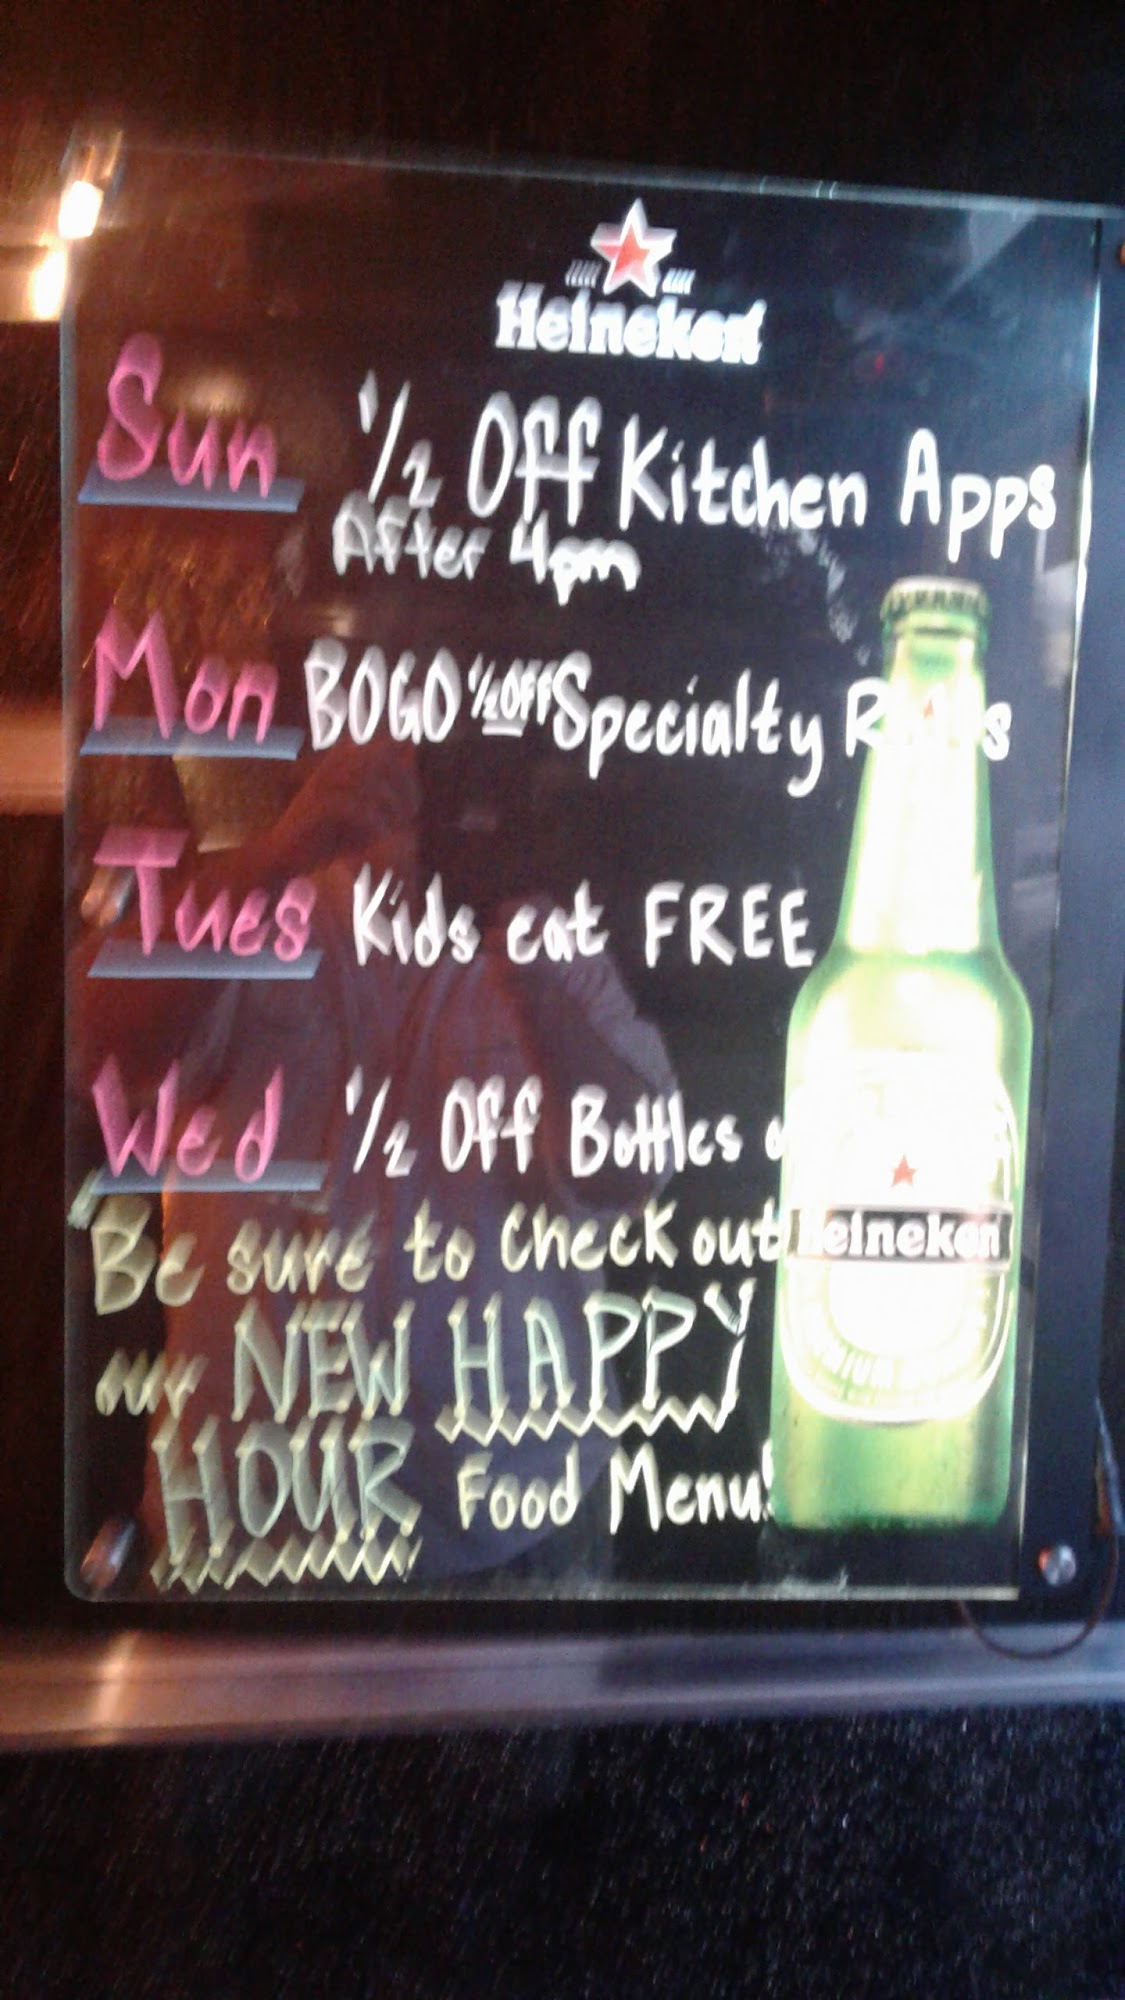 Heineken
Sun 1/2 Off Kitchen Apps
After 4pm
Mon BOGO 1/2 OFF Specialty
Tues Kids eat FREE
Wed 1/2 Off Bottles
Be sure to check out
our NEW HAPPY
HOUR Food Menu!
Heineken